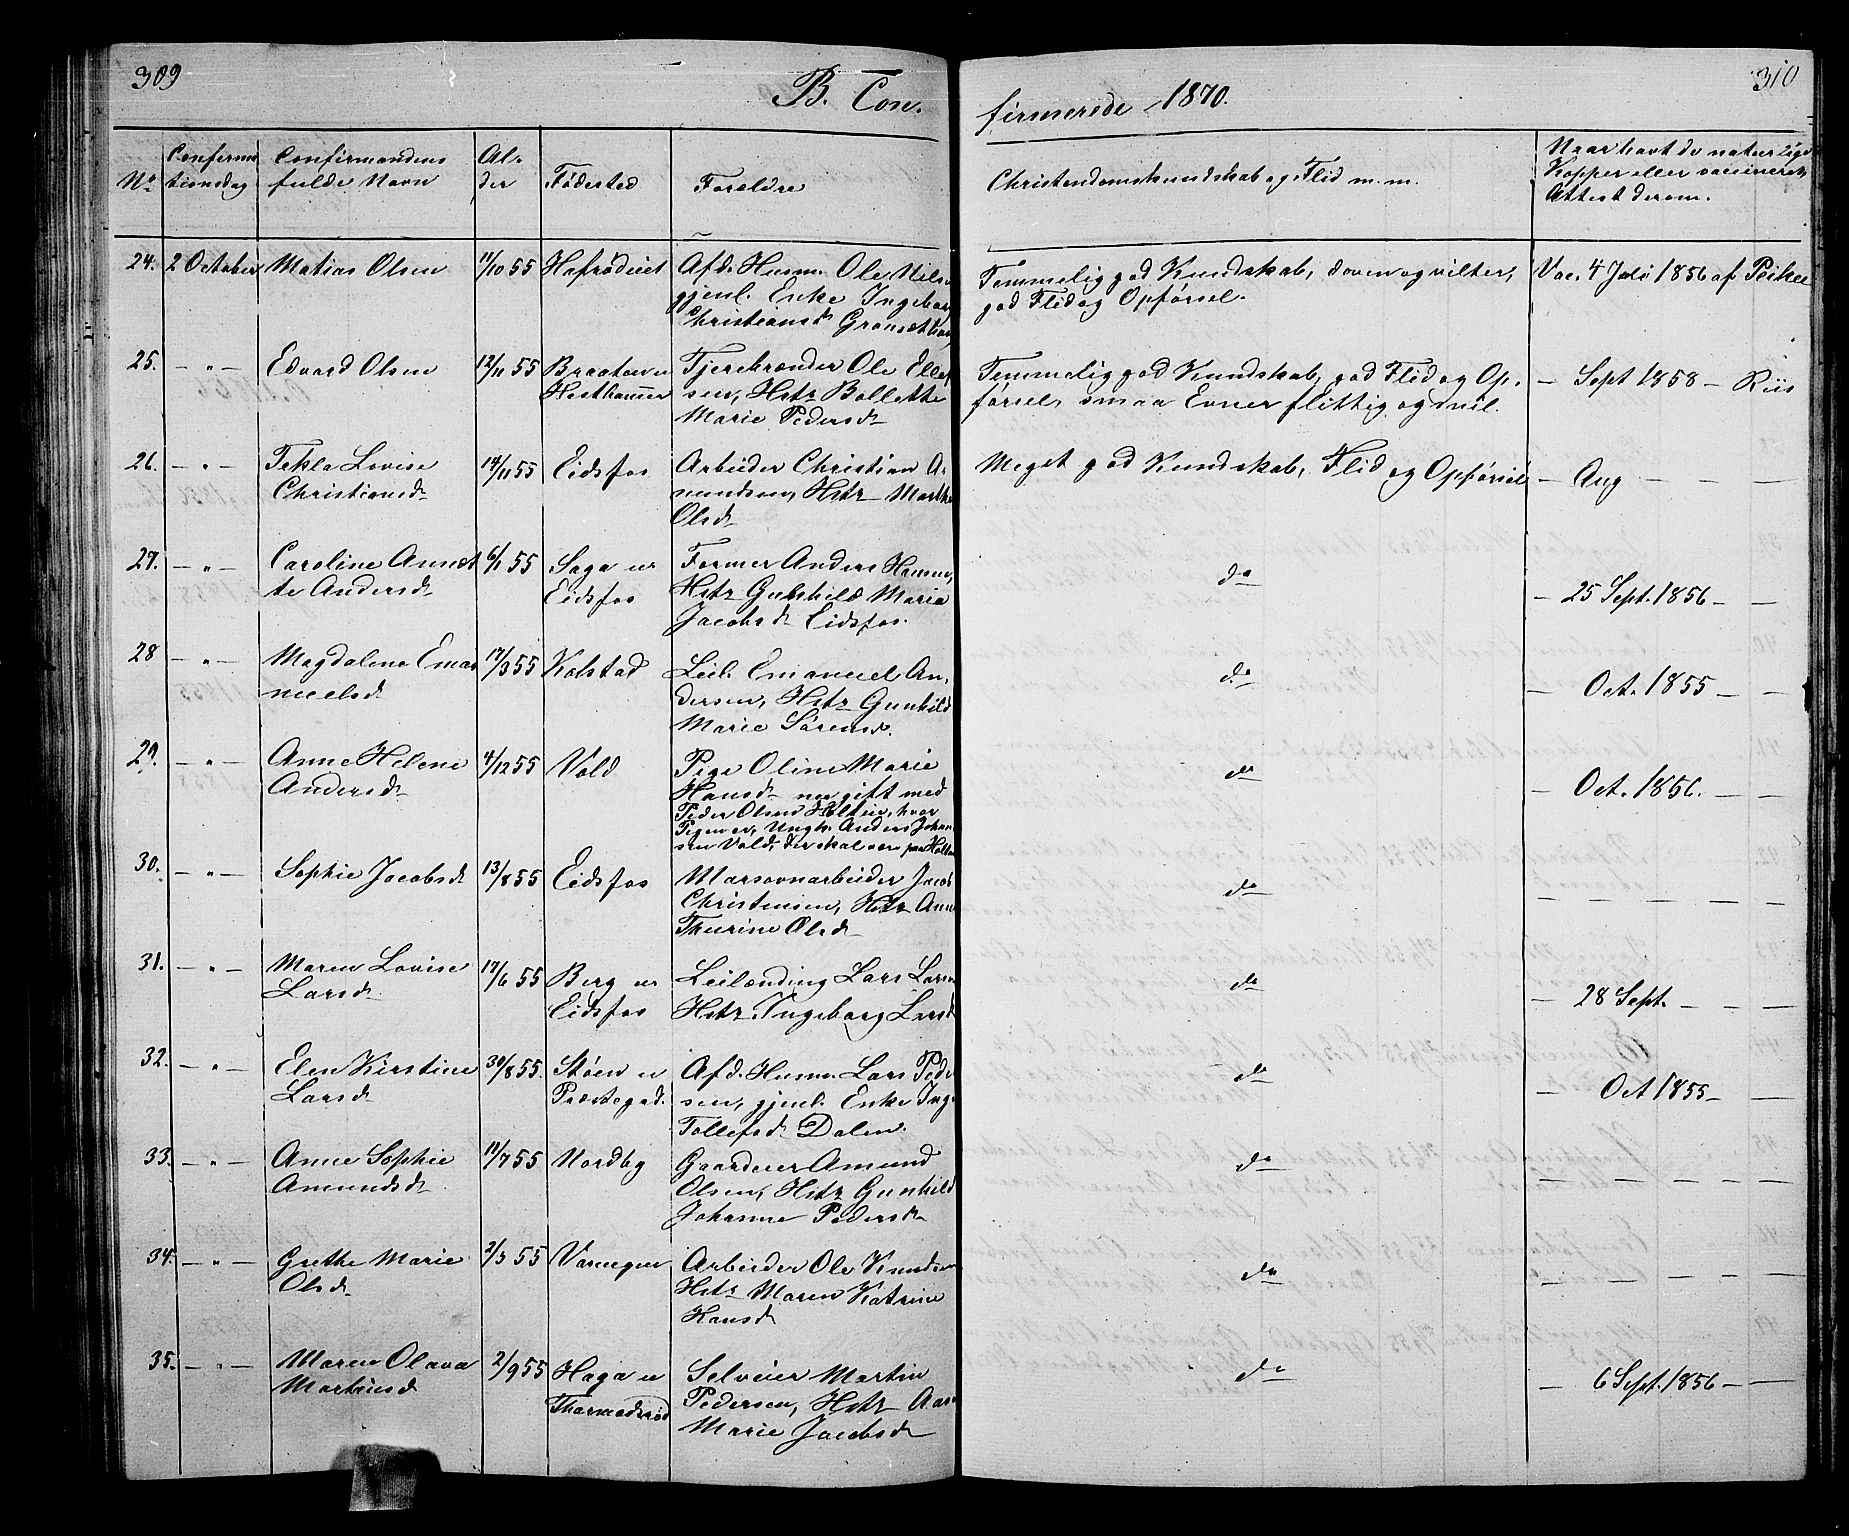 309
B. Con-
firmerede 1870.
310
No
Confirma
tionsdag
Confirmandens
fulde Navn
Al-
der
Födested
Forældre
Christendomskundskab og Flid m.m.
Naar havt de naturlige
Kopper eller vaccineret,
Attest derom.
24. 2 October Matias Olsen 11/10 55 Hafrödeiet Afd. Husm. Ole Nils
gjenl. Enke Ingebor
Christiansd. Granset
Temmelig god Kundskab, doven og vilter,
god Flid og Opförsel.
Vac. 4 Juli 1856 af
25. — " — Edvard Olsen 12/11 55 Braaten u Tjærebrænder Ole Ellef
Hesthammer sen, Hstr Bollette
Marie Pedersd.
Temmelig god Kundskab, god Flid og Op-
försel, smaa Evner flittig og snil.
— Sept 1858 — Riis
26. — " — Tekla Lovise 14/11 55 Eidsfos Arbeider Christian A-
Christiansd. mundsen, Hstr Marthe
Olsd.
Meget god Kundskab, Flid og Opförsel
— Aug — — —
27. — " — Caroline Annet 6/1 55 Saga ur Former Anders Hansen,
te Andersd. Eidsfos Hstr Gunhild Maria
Jacobsd. Eidsfos.
do
— 25 Sept. 1856 — —
28 — " — Magdalene Ema 17/3 55 Kolstad Leil. Emanuel An-
nuelsd. dersen, Hstr Gunhild
Marie Sörensd.
do
— Oct. 1855 — —
29. — " — Anne Helene 4/12 55 Vold Pige Oline Marie
Andersd. Hansd. nu gift med
Peder Olsen Holtin, hvor
Pigen er, Ungk. Anders Johan
sen Vold, der skal være paa Holt
do
— Oct. 1856. — —
30. — " — Sophie Jacobsd. 13/8 55 Eidsfos Masovnarbeider Jacob
Christensen, Hstr Anne
Thurine Olsd.
do
— — — — —
31. — " — Maren Lovise 17/6 55 Berg ur Leilænding Lars Lars
Larsd. Eidsfos Hstr Ingeborg Larsd
do
— 28 Sept. — — —
32. — " — Elen Kirstine 30/8 55. Stöen u Afd. Husm. Lars Peder
Larsd. Præstegd. sen, gjenl. Enke Ing
Tollefsd. Dalen.
do
— Oct 1855 — —
33. — " — Anne Sophie 11/7 55 Nordby Gaardeier Amund
Amundsd. Olsen, Hstr Gunhild
Johanne Pedersd.
do
— — — — —
34. — " — Grethe Marie 2/3 55 Arbeider Ole Knudsen
Olsd. Hstr Maren Katrine
Hansd.
do
— — — — —
35. — " — Maren Olava 2/9 55 Haga u Selveier Martin
Martinsd. Thormodsröd Pedersen, Hstr Aas
Marie Jacobsd.
do
— 6 Sept. 1856 — —